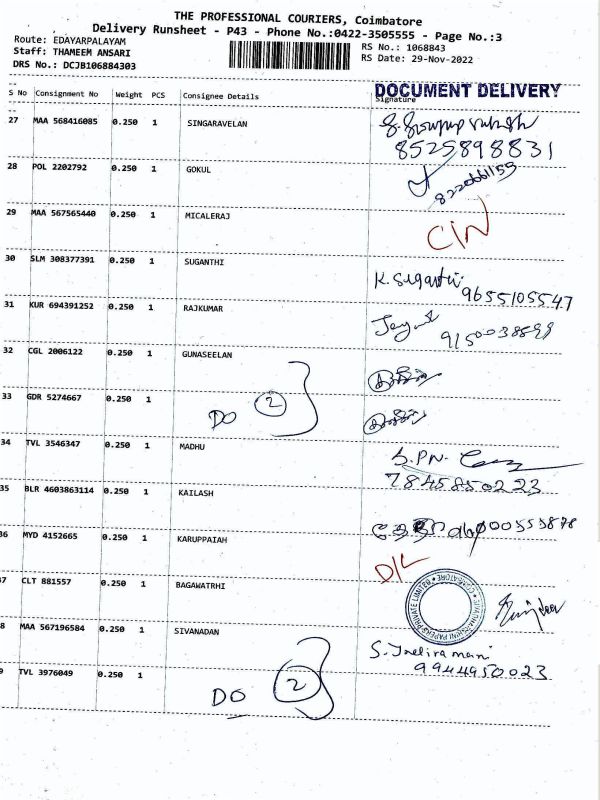 THE PROFESSIONAL COURIERS, Coimbatore
Delivery Runsheet - P43 - Phone No.:0422-3505555 - Page No.:3
Route: EDAYARPALAYAM
Staff: THAMEEM ANSARI
DRS No.: DCJB106884303
RS No.: 1068843
RS Date: 29-Nov-2022
DOCUMENT DELIVERY
S No Consignment No Weight PCS Consignee Details Signature
27 MAA 568416085 0.250 1 SINGARAVELAN
8525898831
28 POL 2202792 0.250 1 GOKUL
29 MAA 567565440 0.250 1 MICALERAJ
30 SLM 308377391 0.250 1 SUGANTHI K. Suganthi
9655105547
31 KUR 694391252 0.250 1 RAJKUMAR
32 CGL 2006122 0.250 1 GUNASEELAN
33 GDR 5274667 0.250 1 DO 2
34 TVL 3546347 0.250 1 MADHU S.PN.
7845850223
35 BLR 4603863114 0.250 1 KAILASH
36 MYD 4152665 0.250 1 KARUPPAIAH
D/L
7 CLT 881557 0.250 1 BAGAWATRHI
8 MAA 567196584 0.250 1 SIVANADAN
9944950023
9 TVL 3976049 0.250 1 DO 2